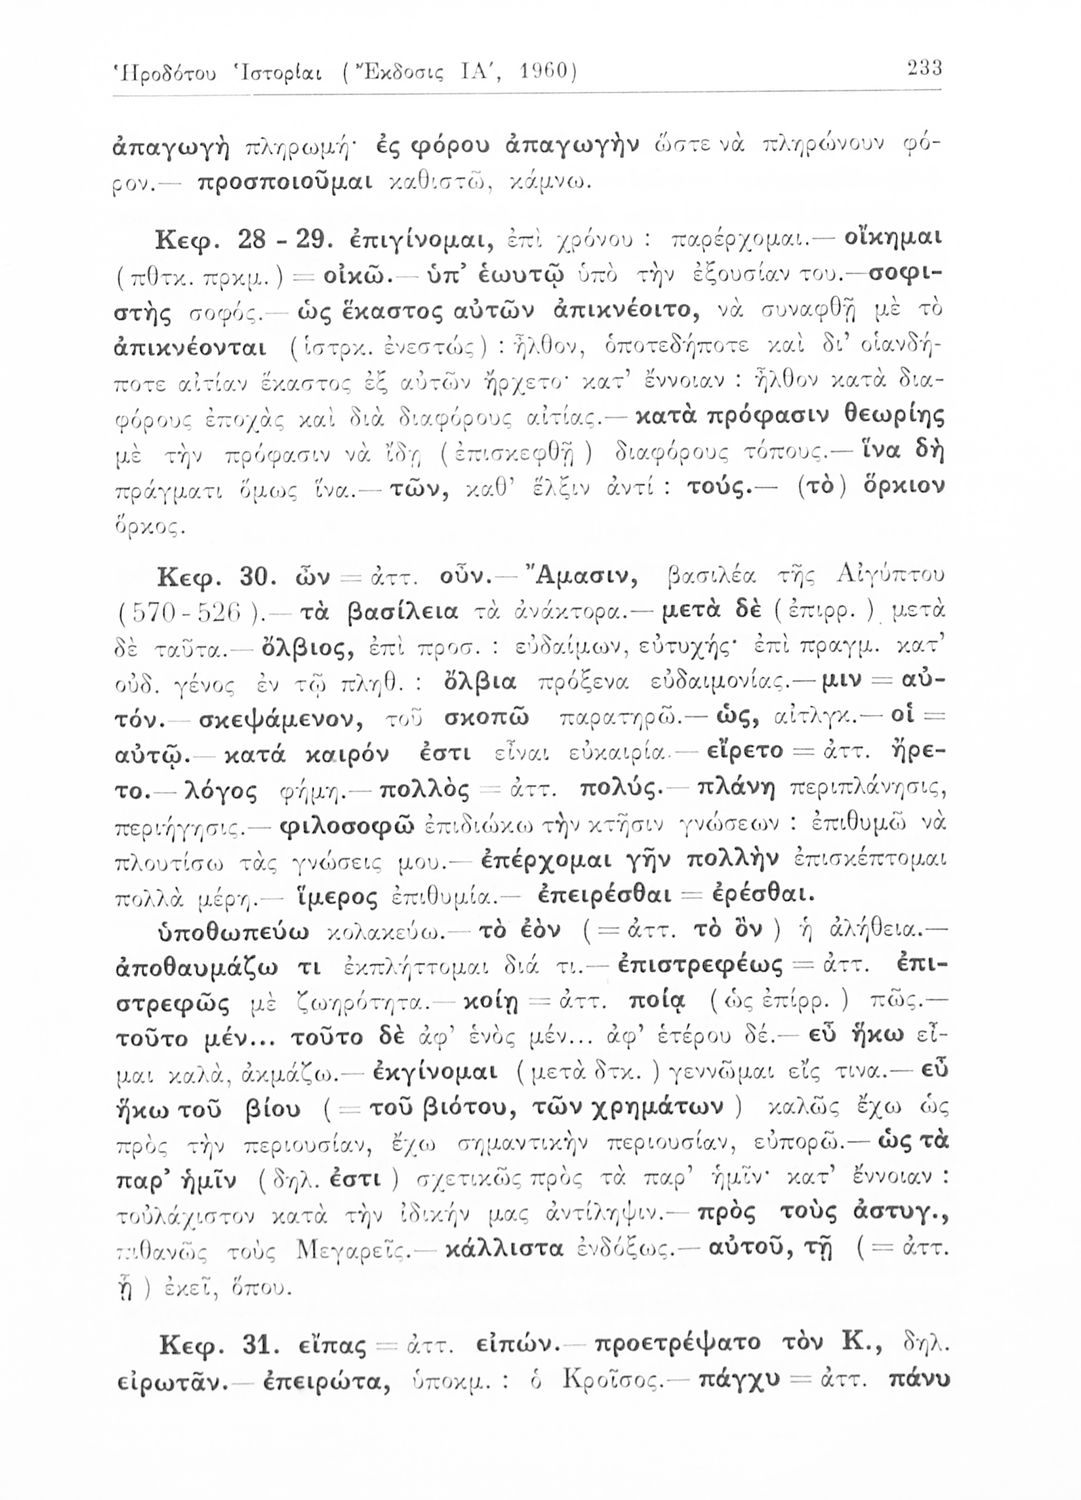 Ἡροδότου Ἱστορίαι ( Ἔκδοσις ΙΑ′, 1960) 233
ἀπαγωγὴ πληρωμή· ἐς φόρου ἀπαγωγὴν ὥστε νὰ πληρώνουν φό-
ρον.— προσποιοῦμαι καθιστῶ, κάμνω.
Κεφ. 28 - 29. ἐπιγίνομαι, ἐπὶ χρόνου : παρέρχομαι.— οἴκημαι
( πθτκ. πρκμ. ) = οἰκῶ.— ὑπ’ ἑωυτῷ ὑπὸ τὴν ἐξουσίαν του.—σοφι-
στὴς σοφός.— ὡς ἕκαστος αὐτῶν ἀπικνέοιτο, νὰ συναφθῇ μὲ τὸ
ἀπικνέονται ( ἱστρκ. ἐνεστώς ) : ἦλθον, ὁποτεδήποτε καὶ δι’ οἱανδή-
ποτε αἰτίαν ἕκαστος ἐξ αὐτῶν ἤρχετο· κατ’ ἔννοιαν : ἦλθον κατὰ δια-
φόρους ἐποχὰς καὶ διὰ διαφόρους αἰτίας.— κατὰ πρόφασιν θεωρίης
μὲ τὴν πρόφασιν νὰ ἴδῃ ( ἐπισκεφθῇ ) διαφόρους τόπους.— ἵνα δὴ
πράγματι ὅμως ἵνα.— τῶν, καθ’ ἕλξιν ἀντί : τούς.— (τὸ) ὅρκιον
ὅρκος.
Κεφ. 30. ὦν = ἀττ. οὖν.— Ἄμασιν, βασιλέα τῆς Αἰγύπτου
(570 - 526 ).— τὰ βασίλεια τὰ ἀνάκτορα.— μετὰ δὲ ( ἐπιρρ. ) μετὰ
δὲ ταῦτα.— ὄλβιος, ἐπὶ προσ. : εὐδαίμων, εὐτυχής· ἐπὶ πραγμ. κατ’
οὐδ. γένος ἐν τῷ πληθ. : ὄλβια πρόξενα εὐδαιμονίας.— μιν = αὐ-
τόν.— σκεψάμενον, τοῦ σκοπῶ παρατηρῶ.— ὡς, αἰτλγκ.— οἱ =
αὐτῷ.— κατά καιρόν ἐστι εἶναι εὐκαιρία.— εἴρετο = ἀττ. ἤρε-
το.— λόγος φήμη.— πολλὸς = ἀττ. πολύς.— πλάνη περιπλάνησις,
περιήγησις.— φιλοσοφῶ ἐπιδιώκω τὴν κτῆσιν γνώσεων : ἐπιθυμῶ νὰ
πλουτίσω τὰς γνώσεις μου.— ἐπέρχομαι γῆν πολλὴν ἐπισκέπτομαι
πολλὰ μέρη.— ἵμερος ἐπιθυμία.— ἐπειρέσθαι = ἐρέσθαι.
ὑποθωπεύω κολακεύω.— τὸ ἐὸν ( = ἀττ. τὸ ὂν ) ἡ ἀλήθεια.—
ἀποθαυμάζω τι ἐκπλήττομαι διά τι.— ἐπιστρεφέως = ἀττ. ἐπι-
στρεφῶς μὲ ζωηρότητα.— κοίῃ = ἀττ. ποίᾳ ( ὡς ἐπίρρ. ) πῶς.—
τοῦτο μέν... τοῦτο δὲ ἀφ’ ἑνὸς μέν... ἀφ’ ἑτέρου δέ.— εὖ ἥκω εἶ-
μαι καλὰ, ἀκμάζω.— ἐκγίνομαι ( μετὰ δτκ. ) γεννῶμαι εἴς τινα.— εὖ
ἥκω τοῦ βίου ( = τοῦ βιότου, τῶν χρημάτων ) καλῶς ἔχω ὡς
πρὸς τὴν περιουσίαν, ἔχω σημαντικὴν περιουσίαν, εὐπορῶ.— ὡς τὰ
παρ’ ἡμῖν ( δηλ. ἐστι ) σχετικῶς πρὸς τὰ παρ’ ἡμῖν· κατ’ ἔννοιαν :
τοὐλάχιστον κατὰ τὴν ἰδικήν μας ἀντίληψιν.— πρὸς τοὺς ἀστυγ.,
πιθανῶς τοὺς Μεγαρεῖς.— κάλλιστα ἐνδόξως.— αὐτοῦ, τῇ ( = ἀττ.
ᾗ ) ἐκεῖ, ὅπου.
Κεφ. 31. εἴπας = ἀττ. εἰπών.— προετρέψατο τὸν Κ., δηλ.
εἰρωτᾶν.— ἐπειρώτα, ὑποκμ. : ὁ Κροῖσος.— πάγχυ = ἀττ. πάνυ